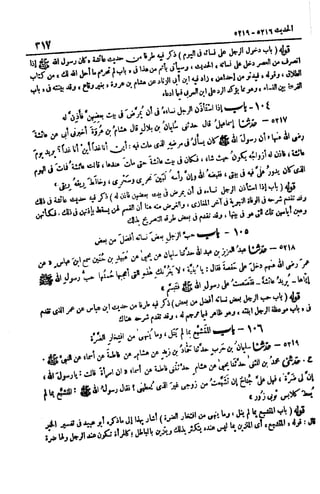 الحديث ٥٢١٦ - ٥٢١٩
٣١٧
قوله (باب دخول الرجل على نسائه في اليوم) ذكر فيه طرفا من حديث عائشة « كان رسول الله ﷺ إذا
انصرف من العصر دخل على نسائه » الحديث، وسيأتي بأتم من هذا في « باب لم تحرم ما أحل الله لك » من كتاب
الطلاق، وقوله « فيدنو من إحداهن » زاد فيه ابن أبي الزناد عن هشام بن عروة « بغير وقاع » وقد بينته في « باب
القرعة بين النساء »
١٠٤ - باب إذا استأذن الرجل نساءه في أن يمرض في بيت بعضهن فأذن له
٥٢١٧ - حدثنا إسماعيل قال حدثني سليمان بن بلال قال هشام بن عروة أخبرني أبي عن عائشة
رضي الله عنها « أن رسول الله ﷺ كان يسأل في مرضه الذي مات فيه: أين أنا غدا أين أنا غدا؟ يريد يوم
عائشة، فأذن له أزواجه يكون حيث شاء، فكان في بيت عائشة حتى مات عندها، قالت عائشة: فمات في اليوم
الذي كان يدور علي فيه في بيتي، فقبضه الله وإن رأسه لبين نحري وسحري، وخالط ريقه ريقي »
قوله (باب إذا استأذن الرجل نساءه في أن يمرض في بيت بعضهن فأذن له) ذكر فيه حديث عائشة في ذلك،
وقد تقدم شرحه في الوفاة النبوية في آخر المغازي، والغرض منه هنا أن القسم لهن يسقط بإذنهن في ذلك، فكأنهن
وهبن أيامهن تلك للتي هو في بيتها، وقد تقدم في بعض طرقه التصريح بذلك
١٠٥ - باب حب الرجل بعض نسائه أفضل من بعض
٥٢١٨ - حدثنا عبد العزيز بن عبد الله حدثنا سليمان عن يحيى عن عبيد بن حنين سمع ابن عباس « عن
عمر رضي الله عنهم دخل على حفصة فقال: يا بنية، لا يغرنك هذه التي أعجبها حسنها حب رسول الله ﷺ
إياها - يريد عائشة - فقصصت على رسول الله ﷺ فتبسم »
قوله (باب حب الرجل بعض نسائه أفضل من بعض) ذكر فيه طرفا من حديث ابن عباس عن عمر الذي تقدم
في « باب موعظة الرجل ابنته » وهو ظاهر فيما ترجم له، وقد تقدم شرحه هناك
١٠٦ - باب المتشبع بما لم ينل، وما ينهى من افتخار الضرة
٥٢١٩ - حدثنا سليمان بن حرب حدثنا حماد بن زيد عن هشام عن فاطمة عن أسماء عن النبي ﷺ
ح - حدثني محمد بن المثنى حدثنا يحيى عن هشام حدثتني فاطمة عن أسماء « أن امرأة قالت: يا رسول الله،
إن لي ضرة، فهل علي جناح إن تشبعت من زوجي غير الذي يعطيني؟ فقال رسول الله ﷺ: المتشبع بما لم
يعط كلابس ثوبي زور »
قوله (باب المتشبع بما لم ينل، وما ينهى من افتخار الضرة) أشار بهذا إلى ما ذكره أبو عبيد في تفسير الخبر
قال: قوله « المتشبع » أي المتزين بما ليس عنده يتكثر بذلك ويتزين بالباطل؛ كالمرأة تكون عند الرجل ولها ضرة